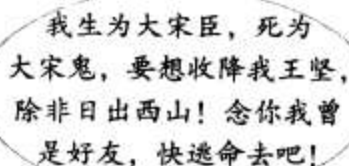 我生为大宋臣，死为
大宋鬼，要想收降我王坚，
除非日出西山！念你我曾
是好友，快逃命去吧！